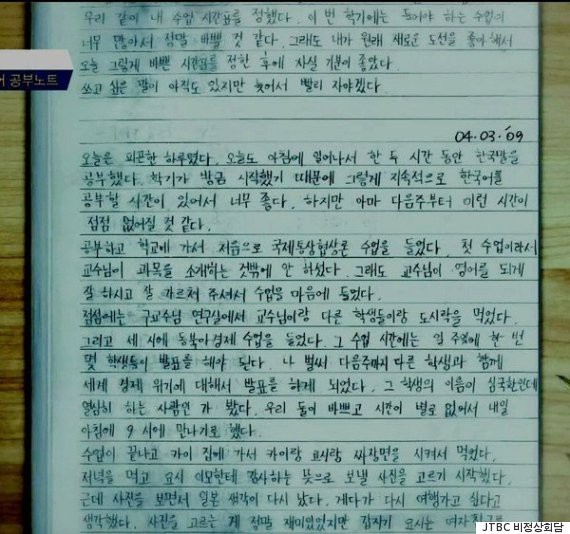 우리 같이 내 수업 시간표를 정했다. 이 번 학기에는 들어야 하는 수업이
너무 많아서 정말 바쁠 것 같다. 그래도 내가 원래 새로운 도전을 좋아해서
오늘 그렇게 바쁜 시간표를 정한 후에 사실 기분이 좋았다.
어 공부노트
쓰고 싶은 말이 아직도 있지만 늦어서 빨리 자야겠다.
04.03.09
오늘은 피곤한 하루였다. 오늘도 아침에 일어나서 한 두 시간 동안 한국말을
공부했다. 학기가 방금 시작했기 때문에 그렇게 지속적으로 한국어를
공부할 시간이 있어서 너무 좋다. 하지만 아마 다음주부터 이런 시간이
점점 없어질 것 같다.
공부하고 학교에 가서 처음으로 국제통상협상론 수업을 들었다. 첫 수업이라서
교수님이 과목을 소개하는 것밖에 안 하셨다. 그래도 교수님이 영어를 되게
잘 하시고 잘 가르쳐 주셔서 수업을 마음에 들었다.
점심에는 구교수님 연구실에서 교수님이랑 다른 학생들이랑 도시락을 먹었다.
그리고 세 시에 동북아경제 수업을 들었다. 그 수업 시간에는 일 주일에 한 번
몇 학생들이 발표를 해야 된다. 나 벌써 다음주까지 다른 학생과 함께
세계 경제 위기에 대해서 발표를 하게 되었다. 그 학생의 이름이 심국한인데
열심히 하는 사람인 가 봤다. 우리 둘이 바쁘고 시간이 별로 없어서 내일
아침에 9 시에 만나기로 했다.
수업이 끝나고 카이 집에 가서 카이랑 요시랑 짜장면을 시켜서 먹었다.
저녁을 먹고 요시 이모한테 감사하는 뜻으로 보낼 사진을 고르기 시작했다.
근데 사진을 보면서 일본 생각이 다시 났다. 게다가 다시 여행가고 싶다고
생각했다. 사진을 고르는 게 정말 재미있었지만 갑자기 요시는 여자친구를
JTBC 비정상회담